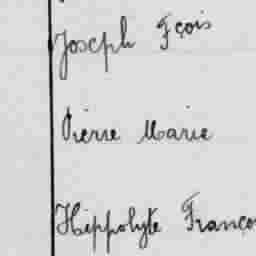 Joseph Fçois
Pierre Marie
Hippolyte Franço